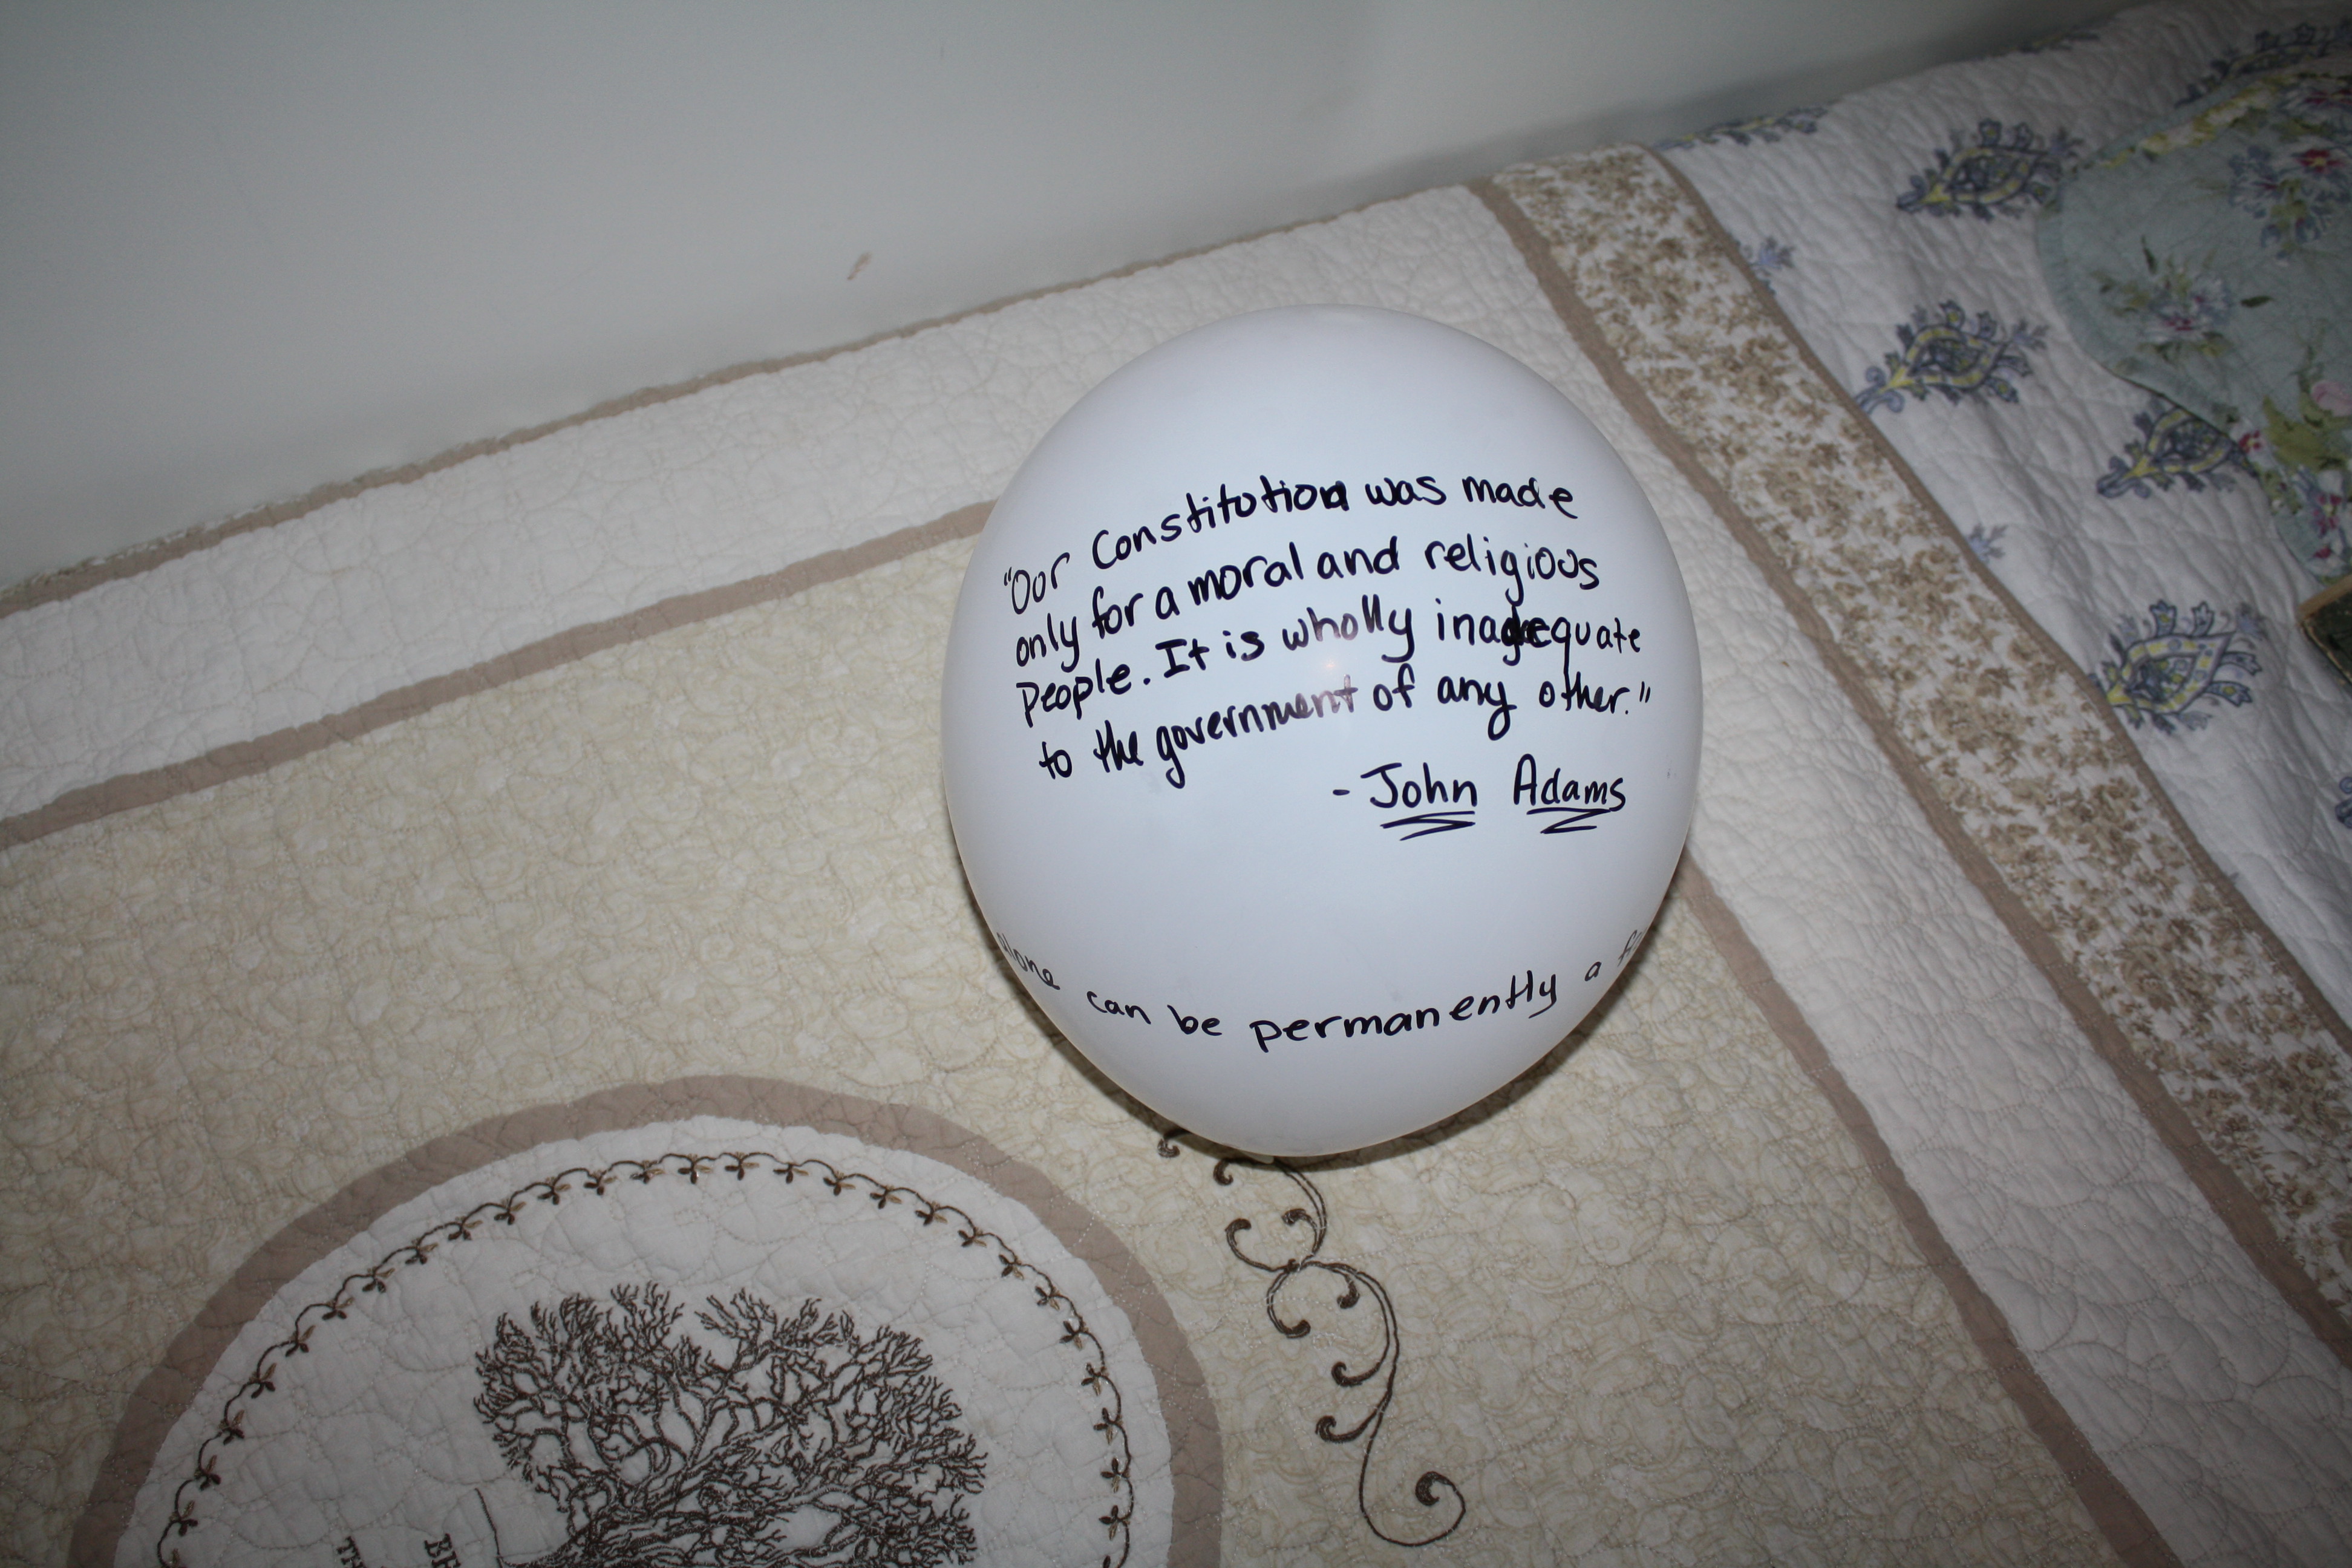 "Our Constitution was made
only for a moral and religious
people. It is wholly inadequate
to the government of any other."
- John Adams
can be permanently a